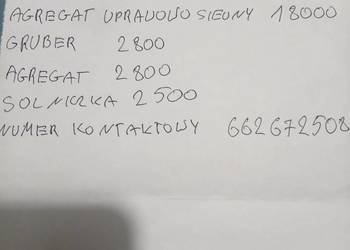 AGREGAT UPRAWOWO SIEWNY 18000
GRUBER 2800
AGREGAT 2800
SOLNICZKA 2500
NUMER KONTAKTOWY 662672508